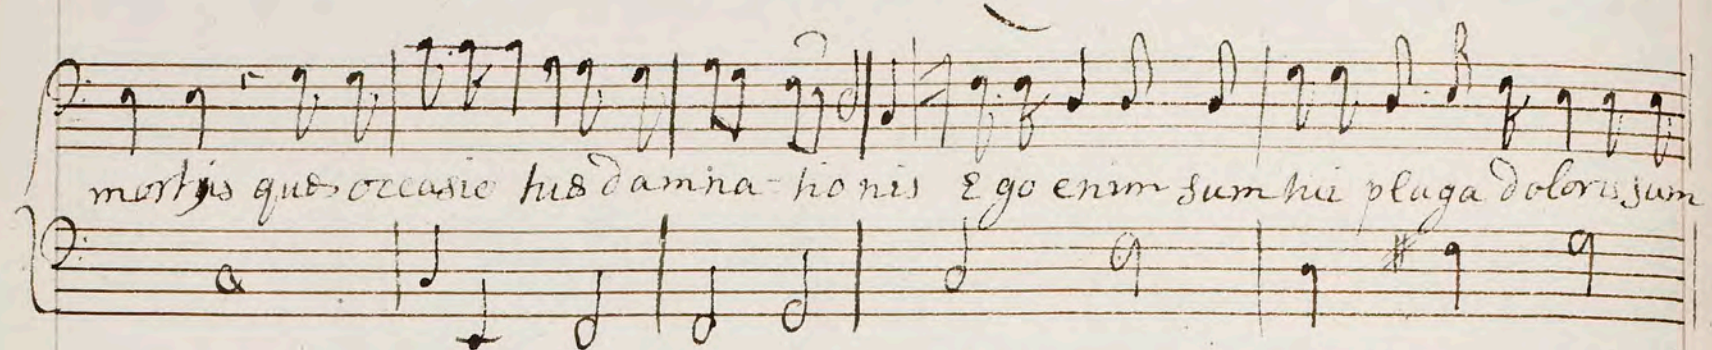 mortis que occasio tuæ damna-tionis Ego enim sum tui plaga doloris sum